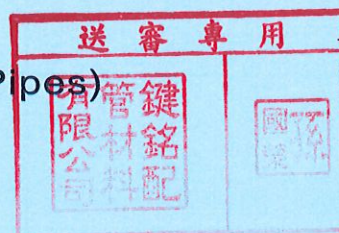 送審專用
Pipes)
鍵銘配
管材料
有限公司
孫